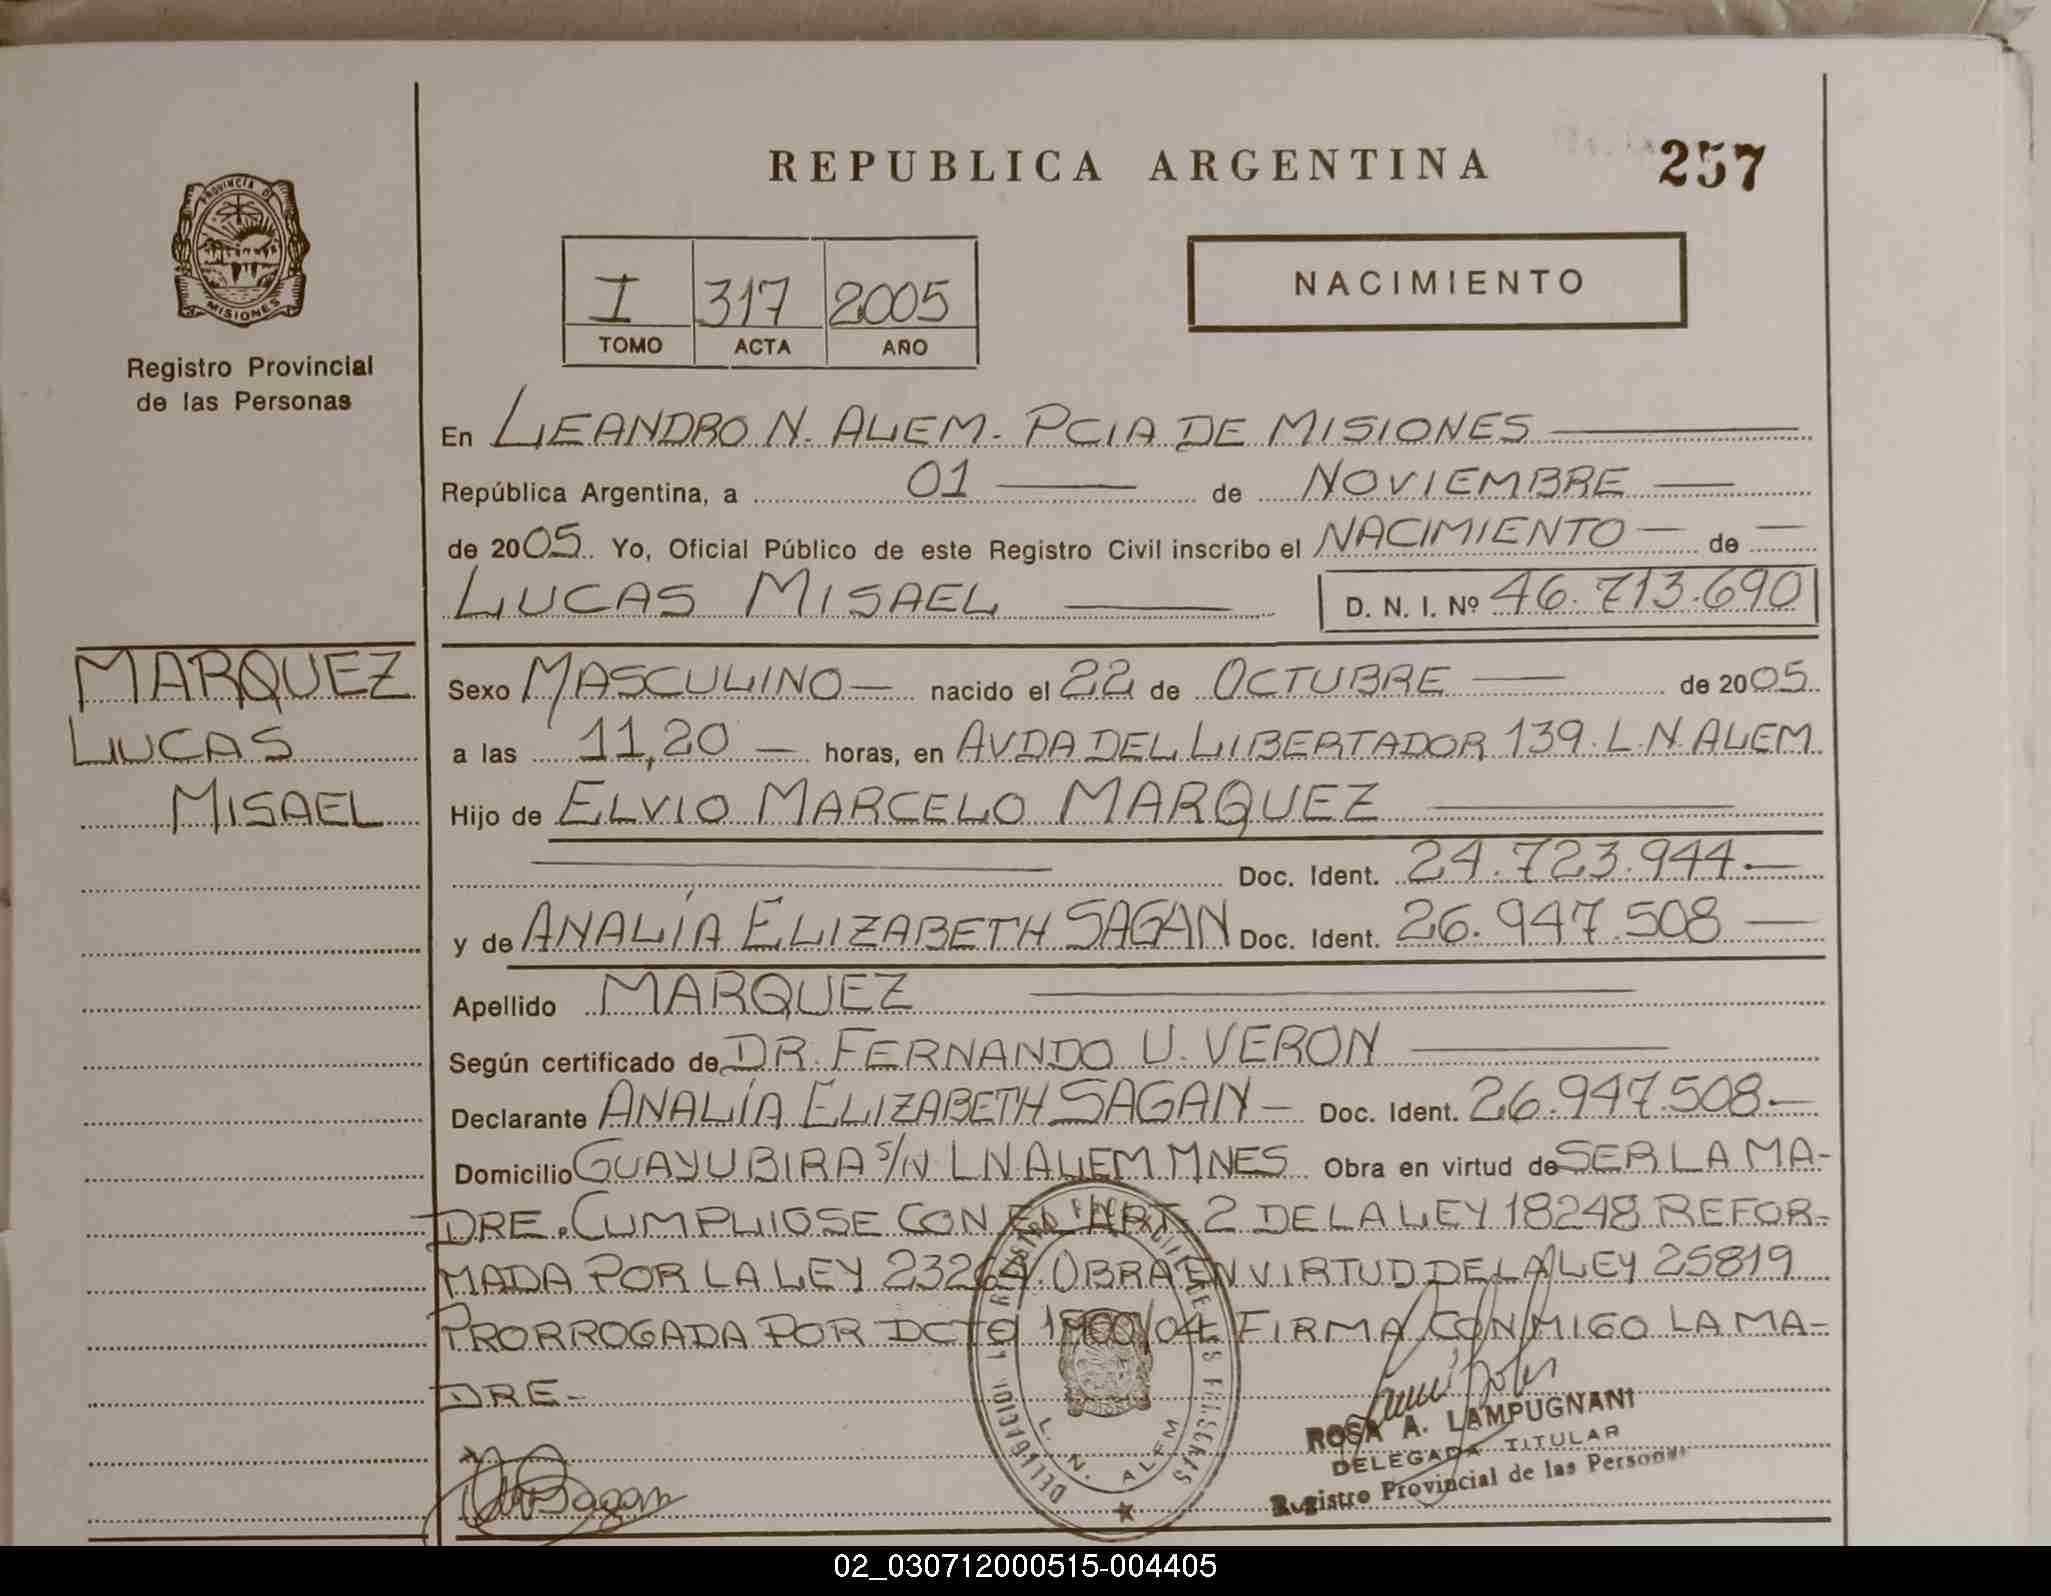 REPUBLICA ARGENTINA
257
PROVINCIA DE
MISIONES
Registro Provincial
de las Personas
I 317 2005
TOMO ACTA AÑO
NACIMIENTO
En LEANDRO N. ALEM. PCIA DE MISIONES
República Argentina, a 01 de NOVIEMBRE
de 2005. Yo, Oficial Público de este Registro Civil inscribo el NACIMIENTO de
LUCAS MISAEL
D. N. I. Nº 46.713.690
MARQUEZ
LUCAS
MISAEL
Sexo MASCULINO nacido el 22 de OCTUBRE de 2005
a las 11,20 horas, en AVDA DEL LIBERTADOR 139. L.N. ALEM
Hijo de ELVIO MARCELO MARQUEZ
Doc. Ident. 24.723.944.
y de ANALÍA ELIZABETH SAGAN Doc. Ident. 26.947.508
Apellido MARQUEZ
Según certificado de DR. FERNANDO U. VERON
Declarante ANALÍA ELIZABETH SAGAN Doc. Ident. 26.947.508.
Domicilio GUAYUBIRA S/N L N ALEM. MNES Obra en virtud de SER LA MA-
DRE. CUMPLIOSE CON EL ART. 2 DE LA LEY 18248 REFOR-
MADA POR LA LEY 23264. OBRA EN VIRTUD DE LA LEY 25819
PRORROGADA POR DCTO /04. FIRMA CONMIGO LA MA-
DRE-
L. N. ALEM
ROSA A. LAMPUGNANI
DELEGADA TITULAR
Registro Provincial de las Personas
Sagan
02_030712000515-004405